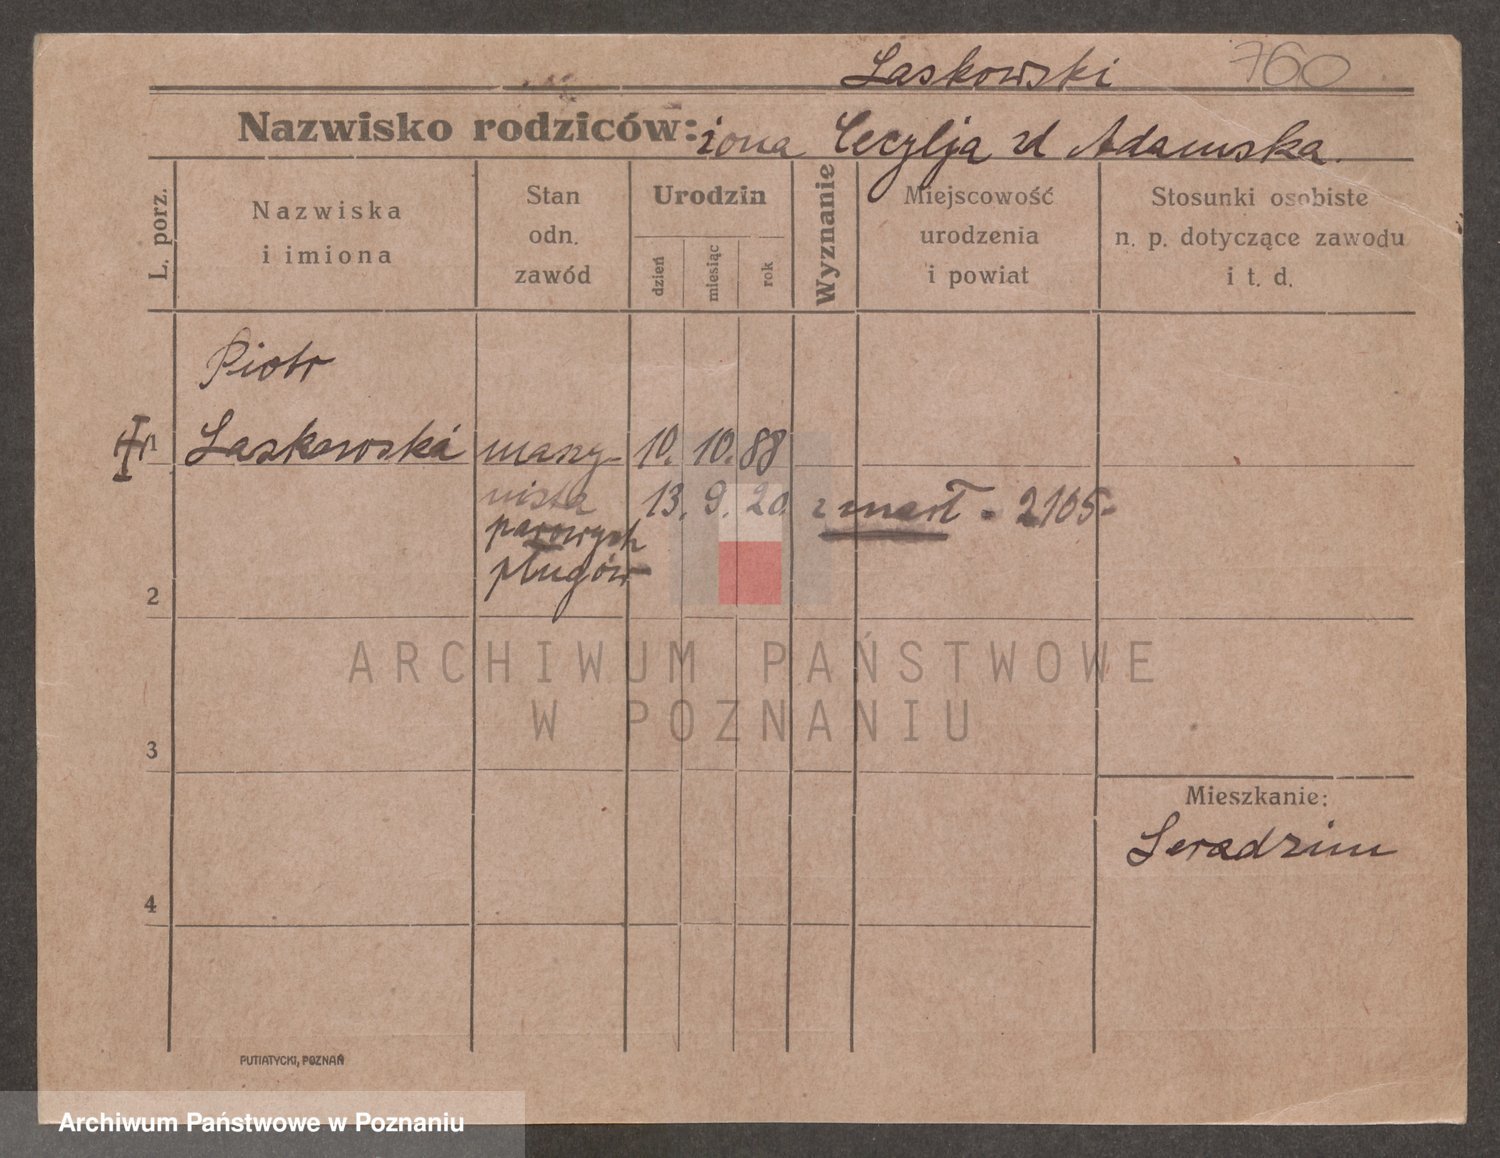 Laskowski 760
Nazwisko rodziców: żona Cecylja zd Adamska.
L. porz.
Nazwiska
i imiona
Stan
odn.
zawód
Urodzin
dzień
miesiąc
rok
Wyznanie
Miejscowość
urodzenia
i powiat
Stosunki osobiste
n. p. dotyczące zawodu
i t. d.
Piotr
1 Laskowski maszy- 10. 10. 88
nista 13. 9. 20. zmarł - 2105-
parowych
pługów
2
3
4
Mieszkanie:
Seradzim
PUTIATYCKI, POZNAŃ
ARCHIWUM PAŃSTWOWE
W POZNANIU
Archiwum Państwowe w Poznaniu